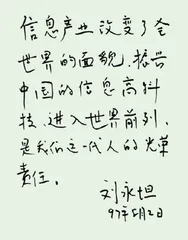 信息产业改变了全
世界的面貌，振兴
中国的信息高科
技，进入世界前列，
是我们这一代人的光荣
责任。
刘永坦
97年5月2日